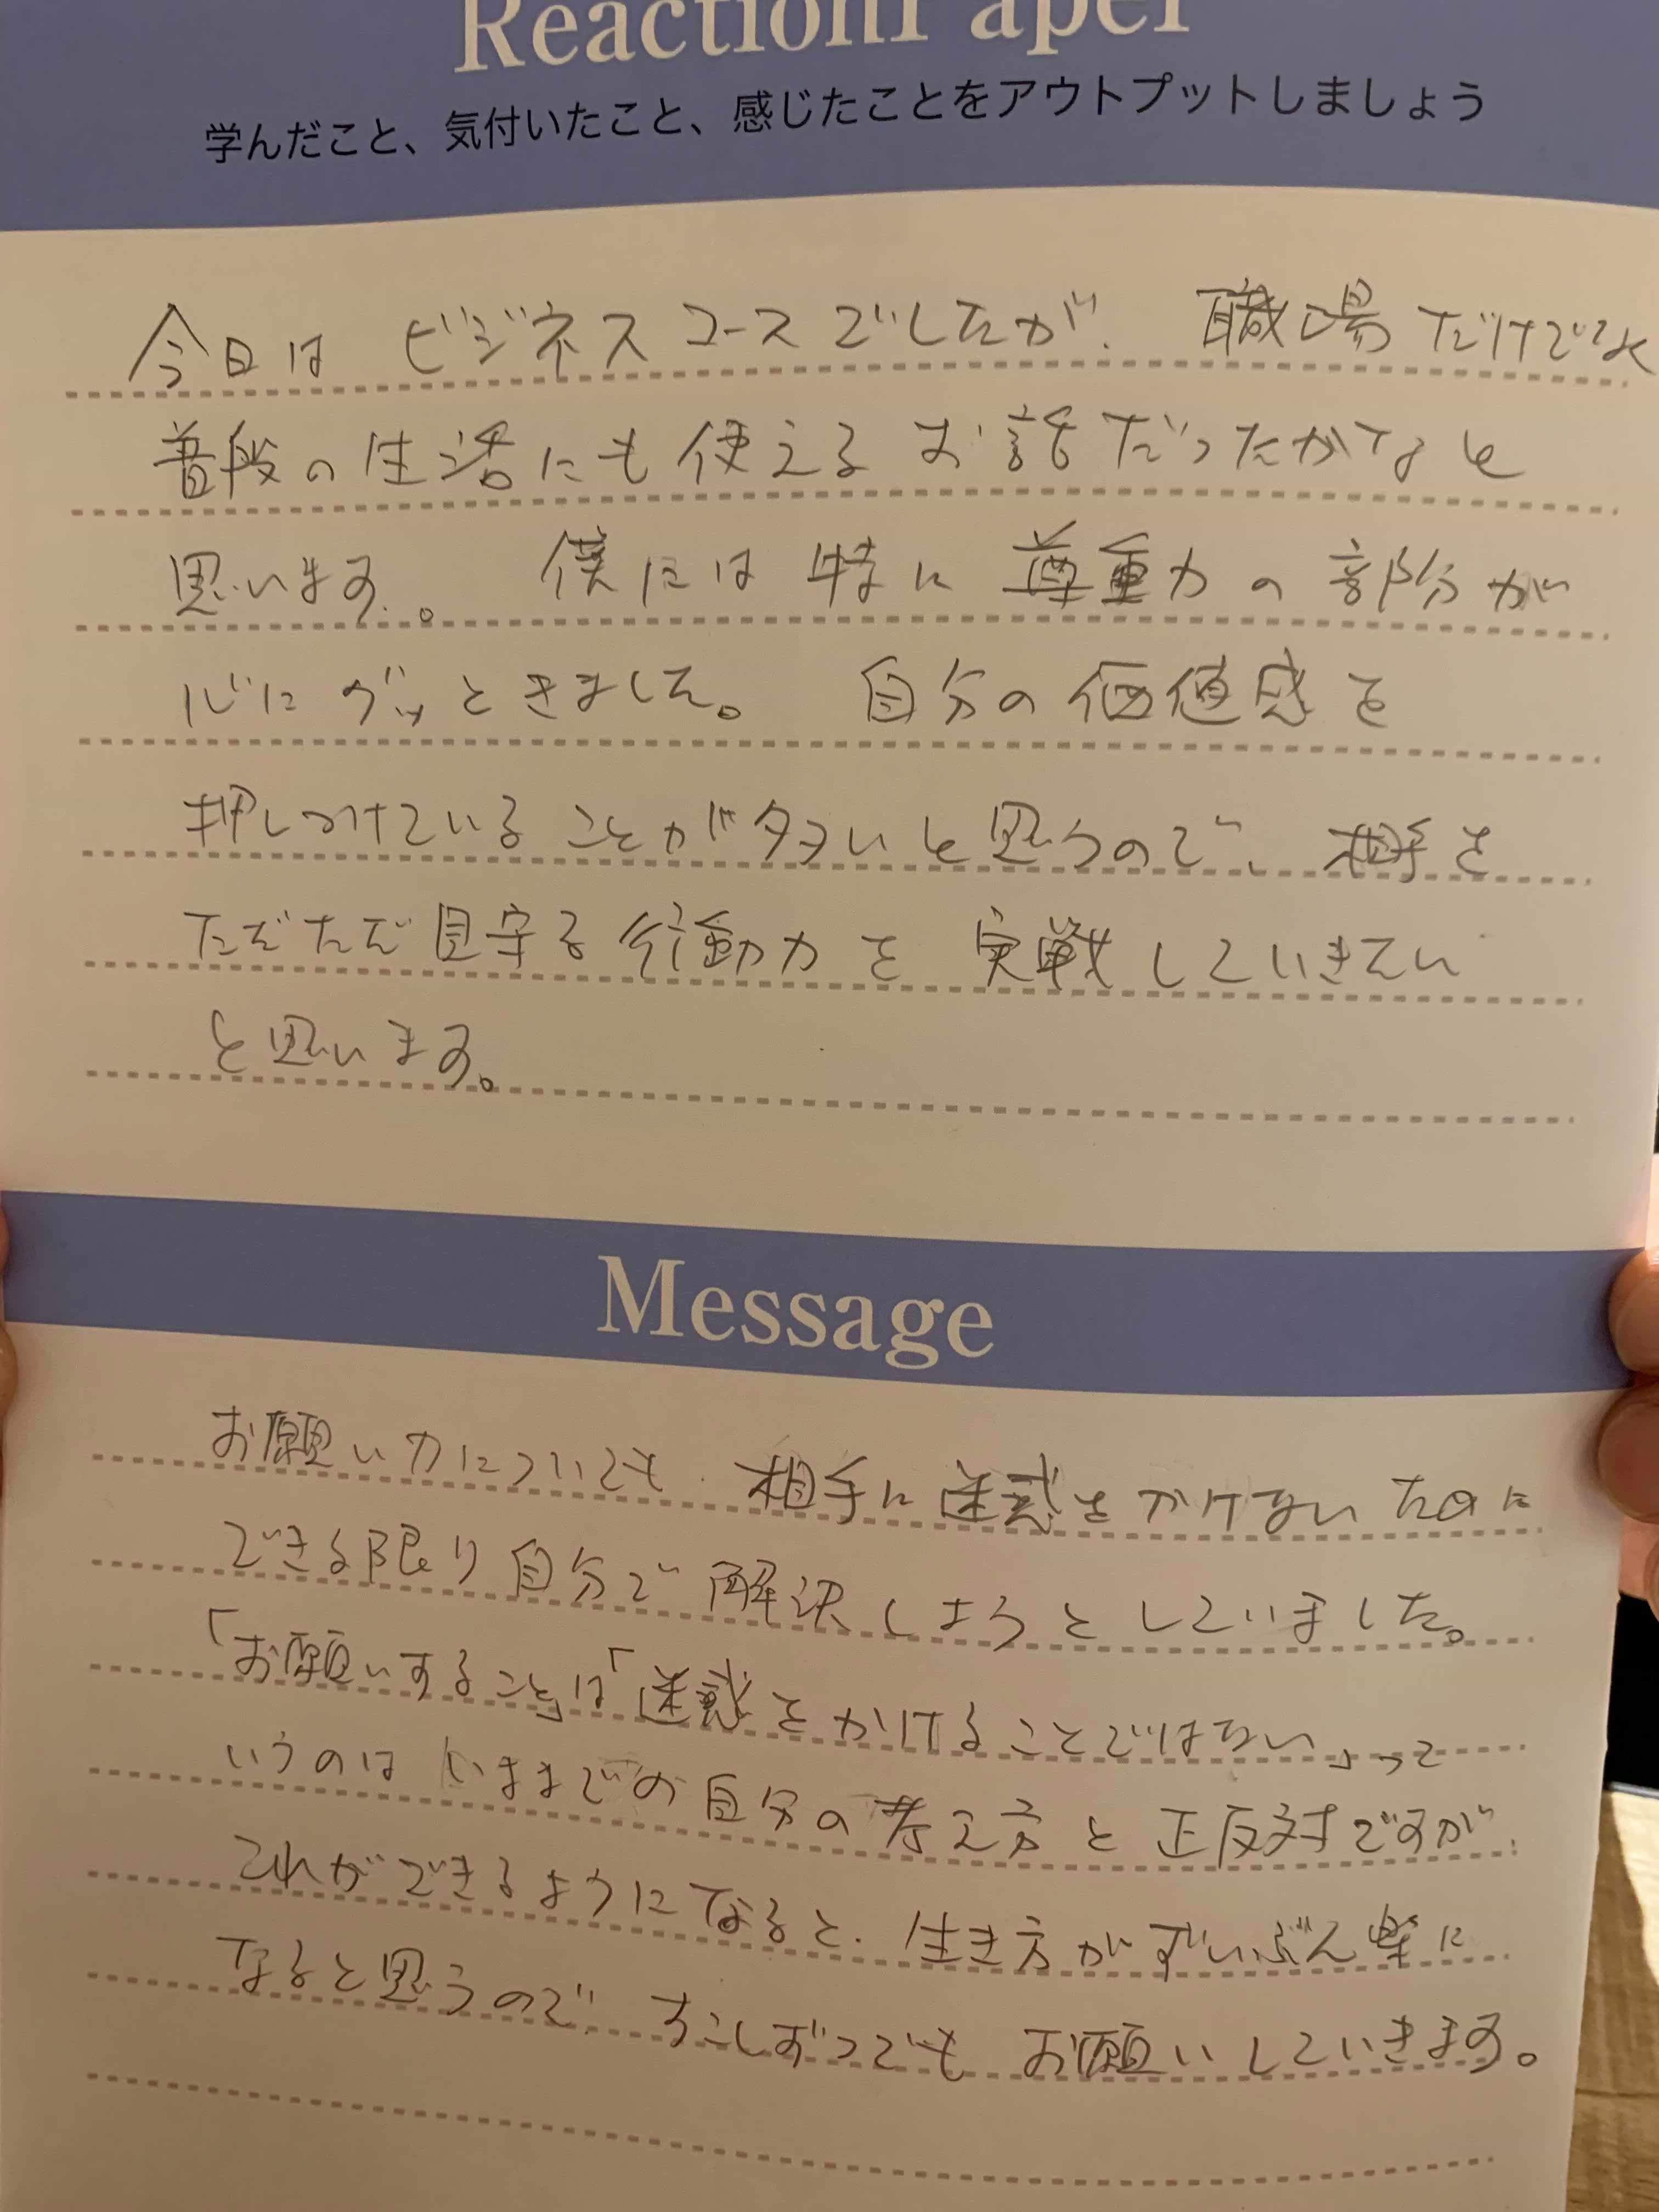 ReactionPaper
学んだこと、気付いたこと、感じたことをアウトプットしましょう
今日は ビジネスコースでしたが、職場だけでなく
普段の生活にも使えるお話だったかなと
思います。 僕には特に尊重力の部分が
心にグッときました。 自分の価値感を
押しつけていることが多いと思うので、相手を
ただただ見守る行動力を実戦していきたい
と思います。
Message
お願い力についても、相手に迷惑をかけないために
できる限り自分で解決しようとしていました。
「お願いすること」は「迷惑をかけることではない」って
いうのは いままでの自分の考え方と正反対ですが、
これができるようになると、生き方がずいぶん楽に
なると思うので、すこしずつでもお願いしていきます。